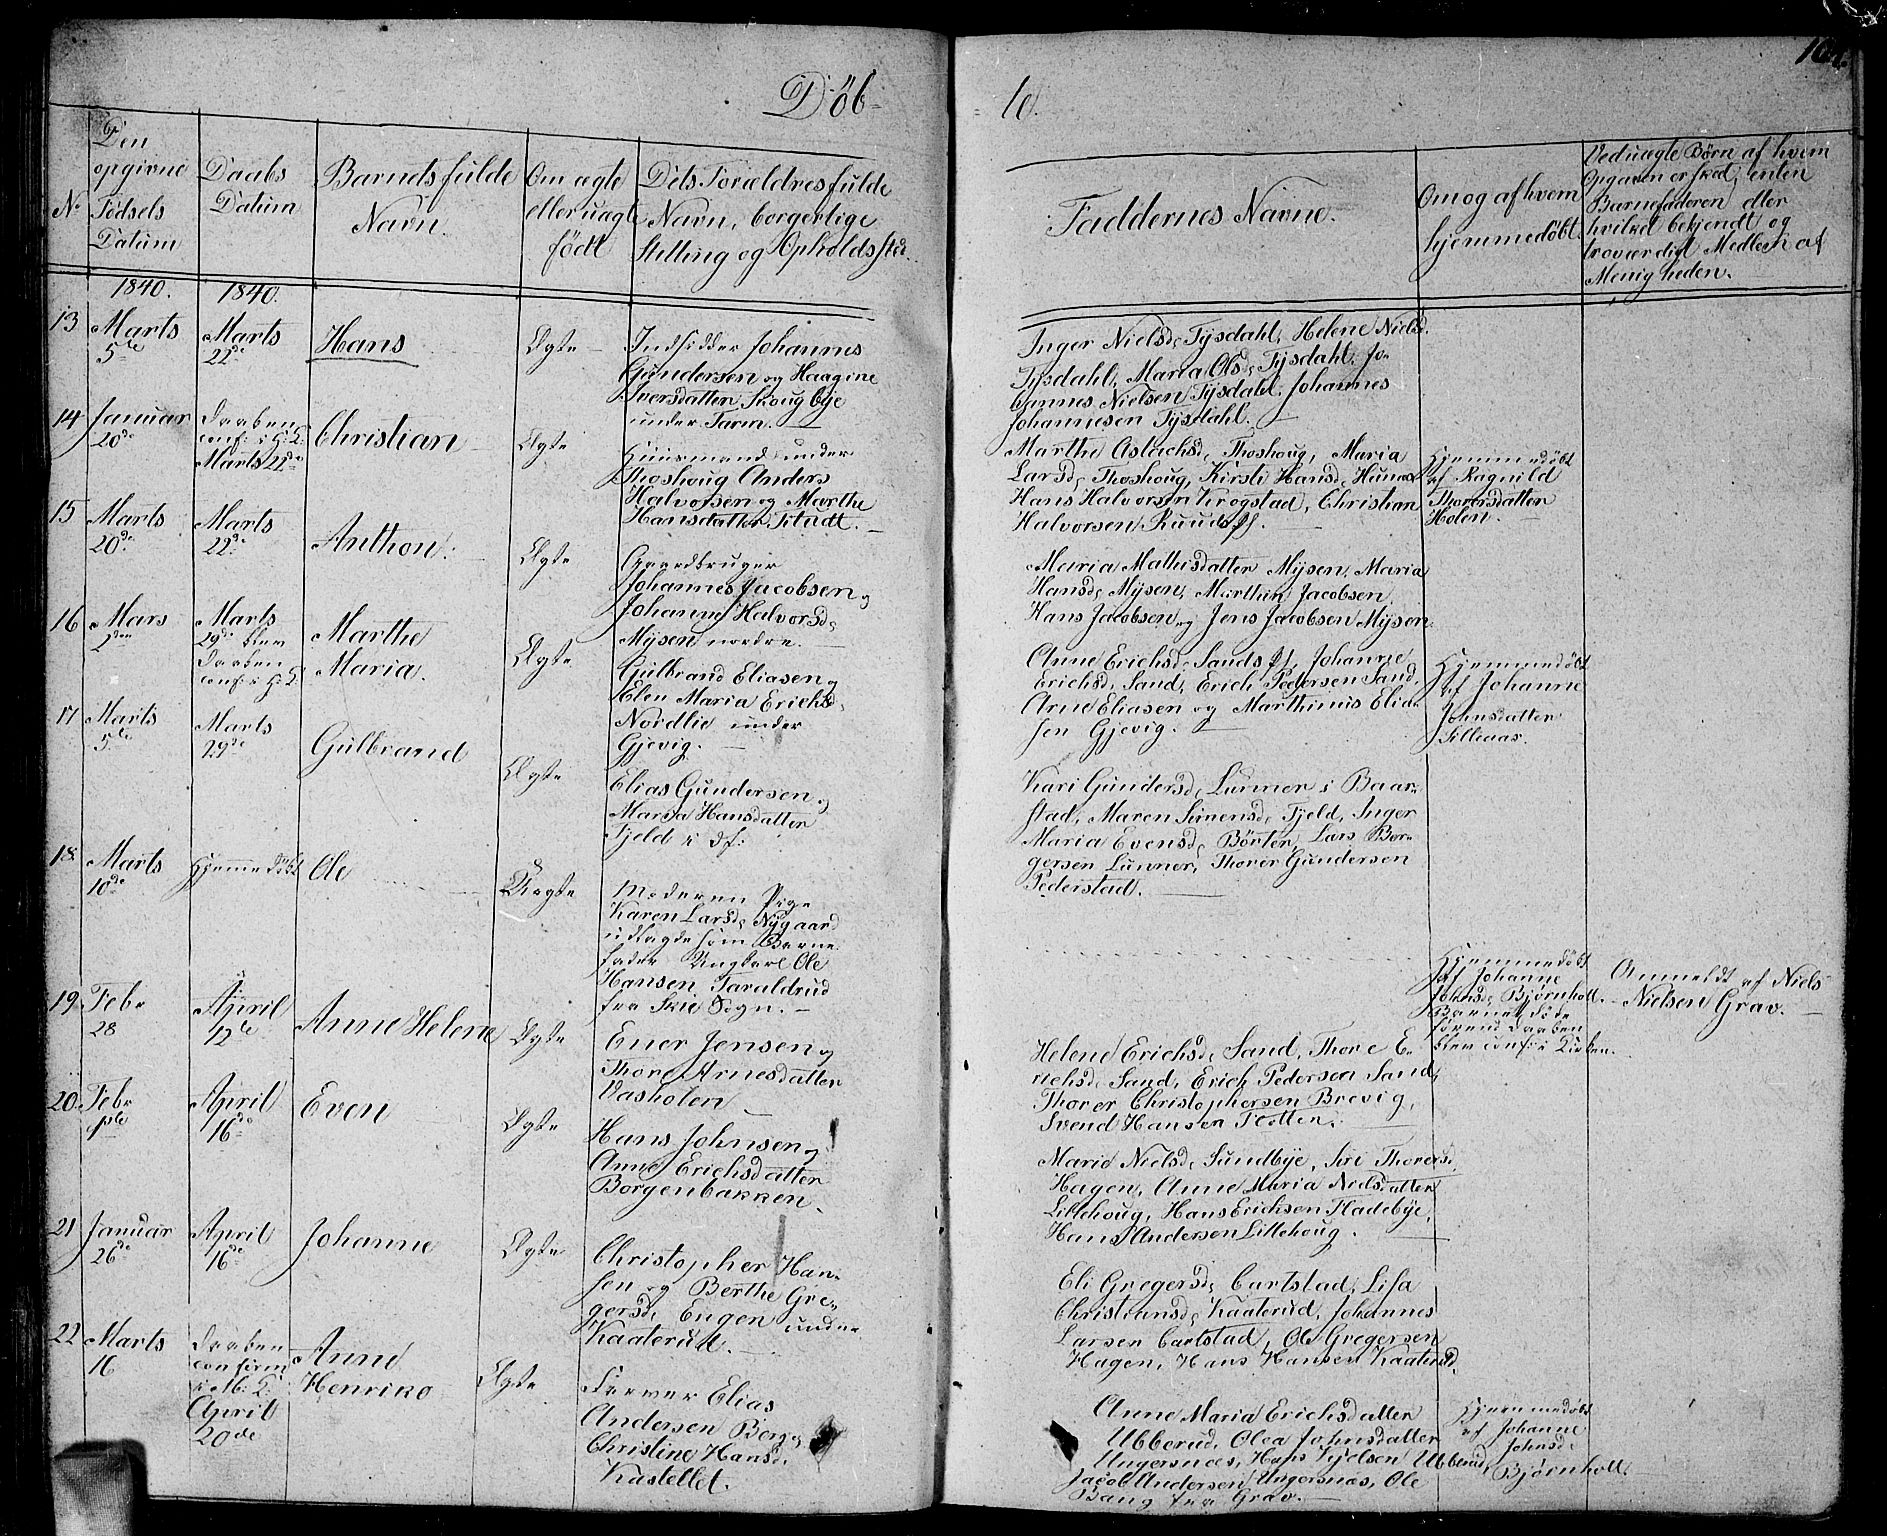 Døb-
te.
Den
opgivne
Fødsels
Datum
No
Daabs
Datum
Barnets fulde
Navn.
Om ægte
eller uægte
født
Dets Forældres fulde
Navn, borgerlige
Stilling og Opholdsted
Faddernes Navne.
Om og af hvem
hjemmedøbt
Ved uægte Børn af hvem
Opgaven er skeet, enten
Barnefaderen eller
hvilket bekjendt og
troværdigt Medlem af
Menigheden.
1840.
1840.
13
Marts
5te
Marts
22de
Hans
Ægte
Indsidder Johannes
Gundersen og Haagine
Iversdatter Skougbye
under Farm.
Inger Nielsd. Tysdahl, Helene Nielsd.
Tysdahl, Maria Olsd. Tysdahl. Jo-
hannes Nielsen Tysdahl. Johannes
Johannesen Tysdahl.
14
Januar
20de
Daaben
conf: i H: K:
Marts 22de
Christian
Ægte
Huusmand under
Thoshoug Anders
Halvorsen og Marthe
Hansdatter
Marthe Aslachsd. Thoshoug, Maria
Larsd. Thoshoug, Kirsti Hansd.
Hans Halvorsen Krogstad, Christian
Halvorsen Ruuds Pl. —
Hjemmedøbt
af Ragnild
Thorersdatter
Holen. —
15
Marts
20de
Marts
22de
Anthon.
Ægte
Gaardbruger
Johannes Jacobsen og
Johanne Halvorsd.
Mysen nordre. —
Maria Mathisdatter Mysen, Maria
Hansd. Mysen, Marthin Jacobsen
Hans Jacobsen og Jens Jacobsen Mysen.
16
Mars
2den
Marts
29de blev
Daaben
conf: i H: K:
Marthe
Maria.
Ægte
Gulbrand Eliasen og
Elen Maria Erichsd.
Nordlie under
Gjevig. —
Anne Erichsd. Sands Pl, Johanne
Erichsd. Sand, Erich Pedersen Sand,
Arne Eliasen og Marthinus Elia-
sen Gjevig. —
Hjemmedøbt
af Johanne
Johnsdatter
17
Marts
5te
Marts
29de
Gulbrand
Ægte
Elias Gundersen og
Maria Hansdatter
Fjeld i
Kari Gundersd. Lunner i Baar-
stad, Maren Simensd. Fjeld, Inger
Maria Evensd. Børter, Lars Bor-
gersen Lunner, Thorer Gundersen
Pederstad. —
18
Marts
10de
Hjemmedøbt
Ole
Uægte
Moderen Pige
Karen Larsd. Nygaard
udlagde som Barne-
fader Ungkarl Ole
Hansen Taraldrud
fra Skie Sogn. —
Hjemmedøbt
af Johanne
Johnsd. Bjørnholt.
Barnet døde
førend Daaben
blev conf: i Kirken.
Anmeldt af Niels
Nielsen Grav. —
19
Febr
28
April
12te
Anne Helene
Ægte
Ener Jensen og
Thore Arnesdatter
Vasholen —
Helene Erichsd. Sand, Thore E-
richsd. Sand, Erich Pedersen Sand,
Thorer Christophersen Brevig,
Svend Hansen
20
Febr
1ste
April
16de
Even
Ægte
Hans Johnsen og
Anne Erichsdatter
Borgenbakken.
Marie Nielsd. Sundbye, Siri Thorersd.
Hagen, Anne Maria Nielsdatter
Lillehoug, Hans Erichsen Fladebye,
Hans Andersen Lillehoug.
21
Januar
26de
April
16de
Johanne
Ægte
Christopher Han-
sen og Berthe Gre-
gersd. Engen under
Kaaterud. —
Eli Gregersd. Carlstad, Lisa
Christiansd. Kaaterud, Johannes
Larsen Carlstad, Ole Gregersen
Hagen, Hans Hansen Kaaterud.
22
Marts
16
Daaben
confirm
i M: K:
April
20de
Anne
Henrike
Ægte
Farver Elias
Andersen Berg og
Christine Hansd.
Kastellet.
Anne Maria Erichsdatter
Ubberud, Olea Johnsdatter
Ungersnæs, Hans Kjelsen Ubberud,
Jacob Andersen Ungersnæs, Ole
Bang fra Grav. —
Hjemmedøbt
af Johanne
Johnsd.
Bjørnholt